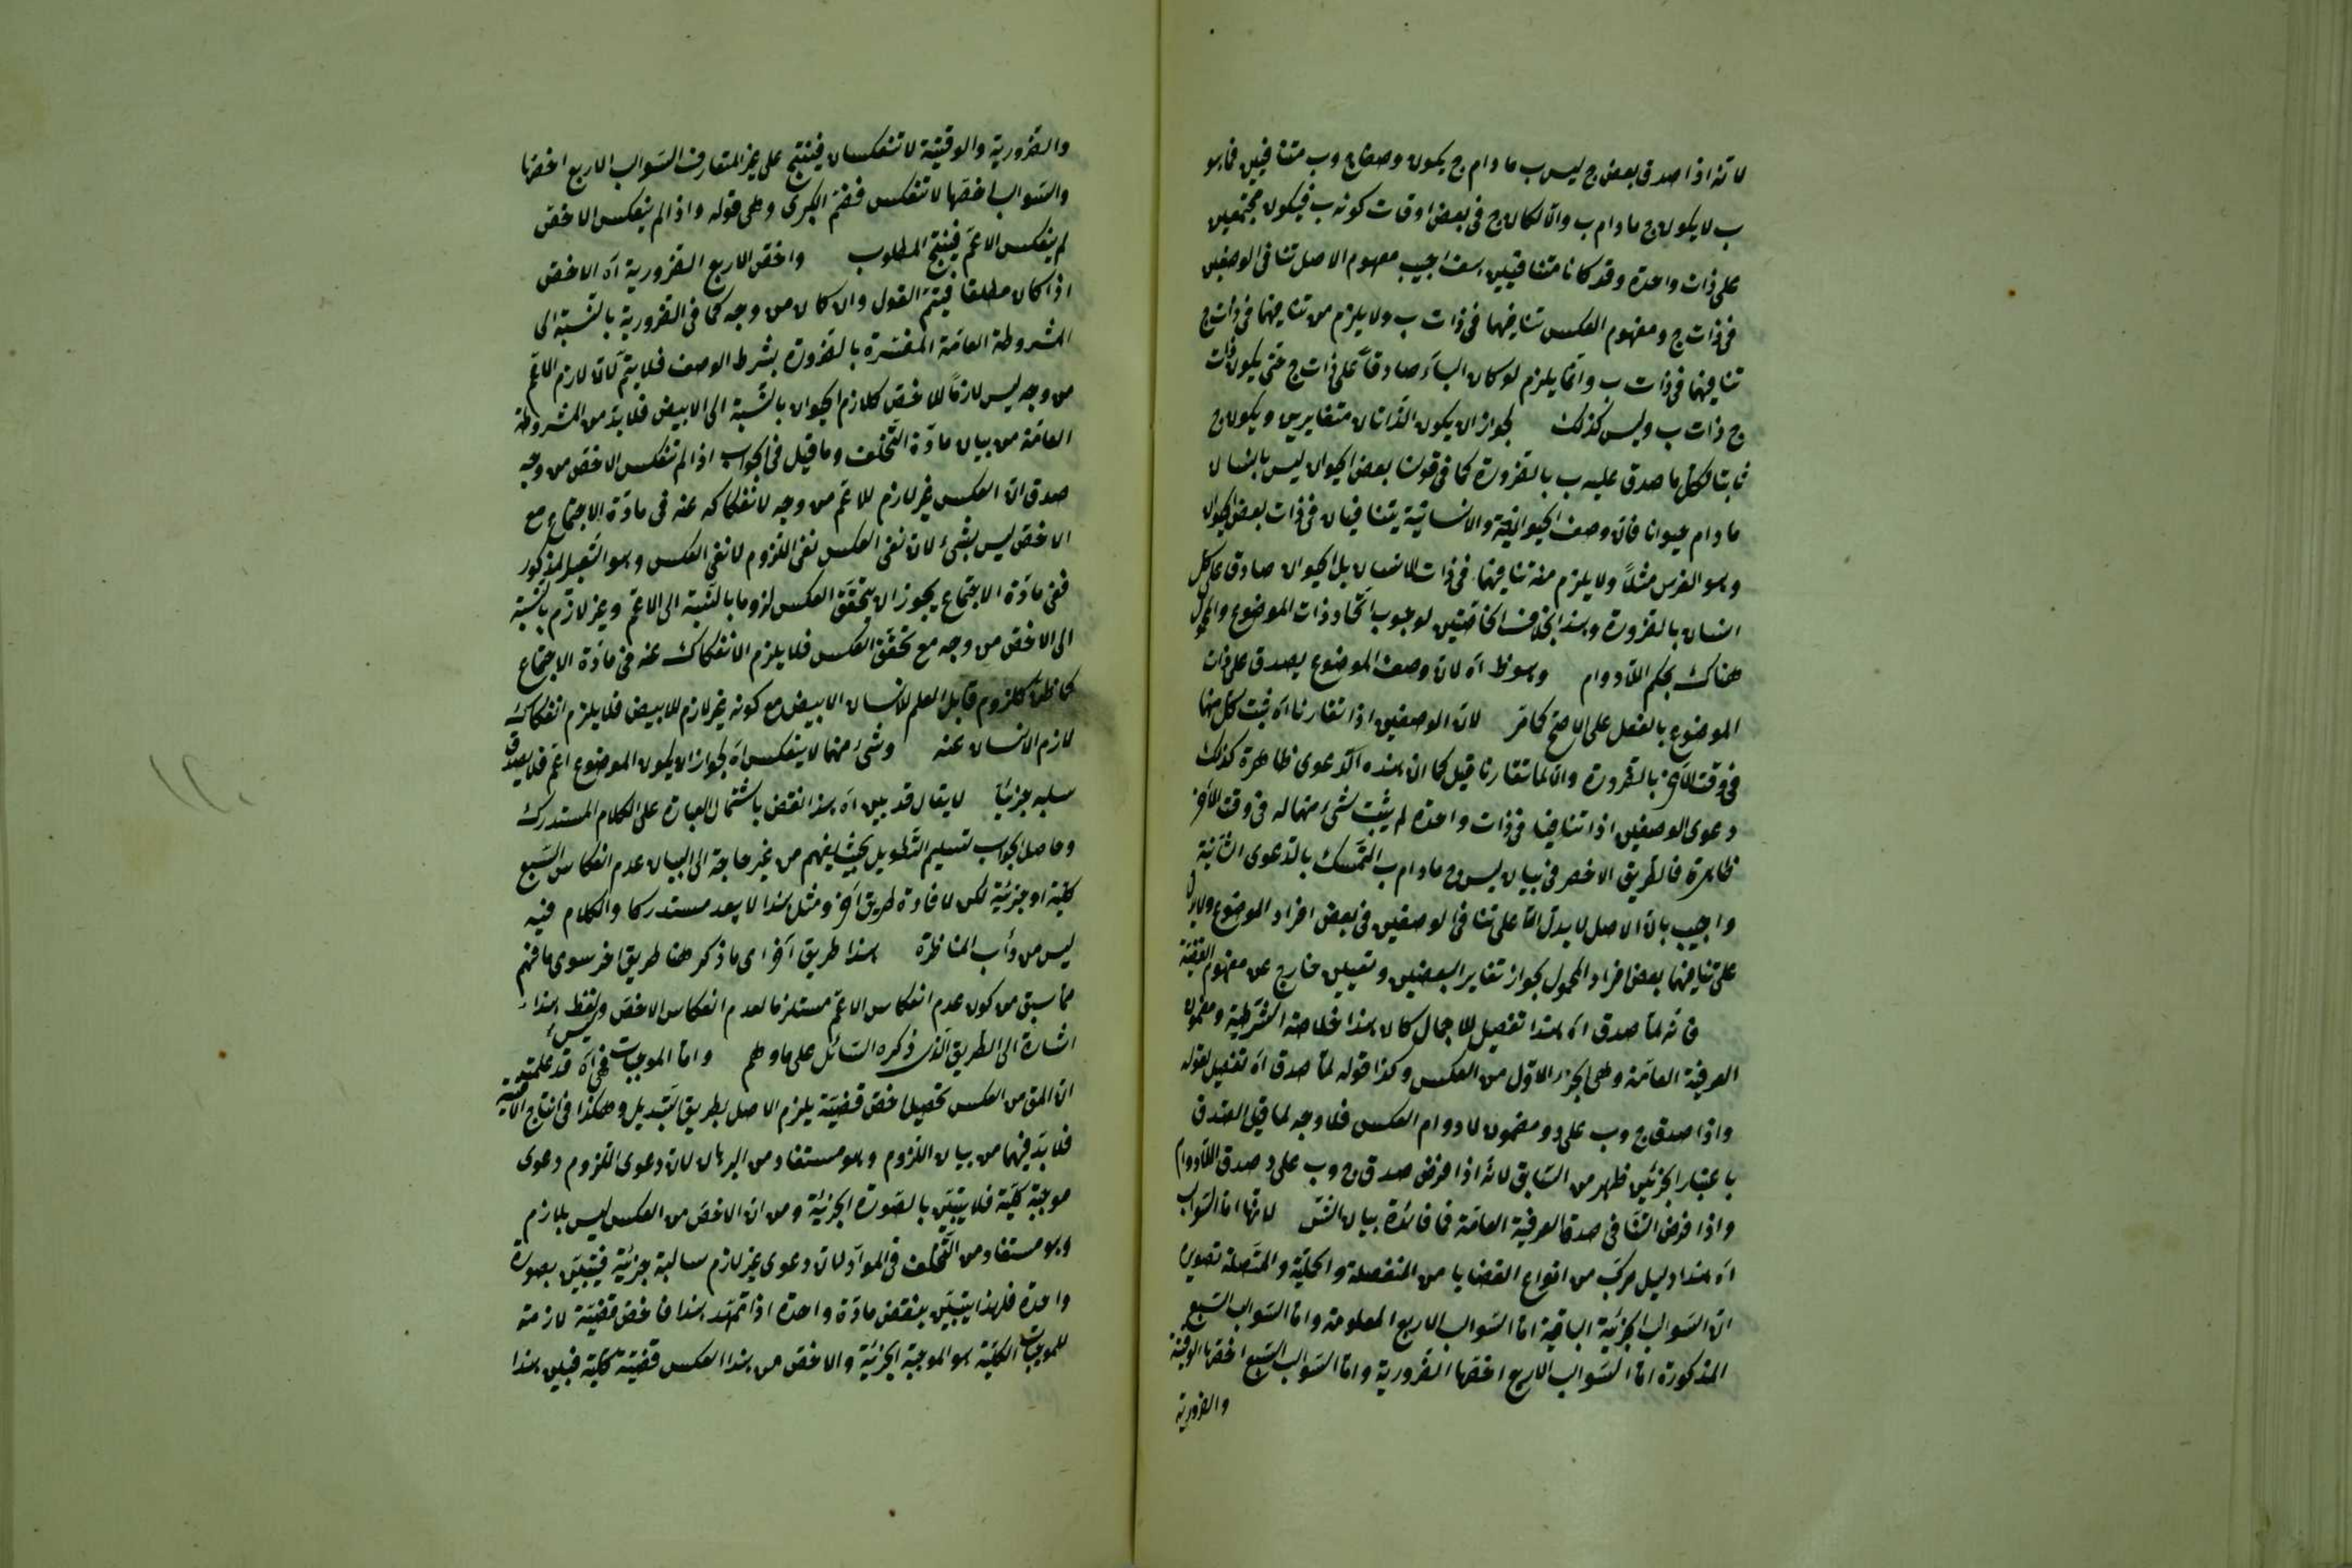 لانه اذا صدق بعض ج ليس ب مادام ج يكون وصفا ج وب متنافيين فما هو
ب لا يكون ج مادام ب والا لكان ج فى بعض اوقات كونه ب فيكون مجتمعين
على ذات واحدة وقد كانا متنافيين هف اجيب مفهوم الاصل تنافى الوصفين
فى ذات ج ومفهوم العكس تنافيهما فى ذات ب ولا يلزم من تنافيهما فى ذات ج
تنافيهما فى ذات ب وانما يلزم لو كان الباء صادقا على ذات ج حتى يكون ذات
ج ذات ب وليس كذلك لجواز ان يكون الذاتان متغايرين ويكون ج
ثابتا لكل ما صدق عليه ب بالضرورة كما فى قولنا بعض الحيوان ليس بانسان
مادام حيوانا فان وصف الحيوانية والانسانية يتنافيان فى ذات بعض الحيوان
وهو الفرس مثلا ولا يلزم منه تنافيهما فى ذات الانسان بل الحيوان صادق على كل
انسان بالضرورة وهذا بخلاف الخاصتين لوجوب اتحاد ذات الموضوع والمحمول
هناك بحكم اللادوام وهو ظ اه لان وصف الموضوع يصدق على ذات
الموضوع بالفعل على الاصح كما مر لان الوصفين اذا تقارنا اه ثبت كل منهما
فى وقت الآخر بالضرورة والا لما تقارنا قيل كما ان هذه الدعوى ظاهرة كذلك
دعوى الوصفين اذا تنافيا فى ذات واحدة لم يثبت شئ منهما له فى وقت الآخر
ظاهرة فالطريق الاخصر فى بيان ليس ج مادام ب التمسك بالدعوى الثانية
واجيب بان الاصل لا يدل الا على تنافى الوصفين فى بعض افراد الموضوع ولا يدل
على تنافيهما بعض افراد المحمول لجواز تغاير البعضين وتعيين خارج عن مفهوم القضية
فانه لما صدق اه هذا تفصيل للاجمال كان هذا خلاصة الشرطية ومضمون
العرفية العامة وهى الجزء الاول من العكس وكذا قوله لما صدق اه تفصيل لقوله
واذا صدق ج وب على د ومضمون لا دوام العكس فلا وجه لما قيل الصدق
باعتبار الجزئين ظهر من السابق لانه اذا فرض صدق ج وب على د صدق اللادوام
واذا فرض التنافى صدق العرفية العامة فما فائدة بيان لانها اما السوالب
اه هذا دليل مركب من انواع القضايا من المنفصلة والحملية والمتصلة تصويره
ان السوالب الجزئية الباقية اما السوالب الاربع المعلومة واما السوالب السبع
المذكورة اما السوالب الاربع اخصها الضرورية واما السوالب السبع اخصها الوقتية
والضرورية
والضرورية والوقتية لا تنعكسان فينتج على غير المتعارف السوالب الاربع اخصها
والسوالب اخصها لا تنعكس فضم الكبرى وهى قوله واذا لم ينعكس الاخص
لم ينعكس الاعم فينتج المطلوب واخص الاربع الضرورية اه الاخص
اذا كان مطلقا فيتم القول وان كان من وجه كما فى الضرورية بالنسبة الى
المشروطة العامة المفسرة بالضرورة بشرط الوصف فلا يتم لان لازم الاعم
من وجه ليس لازما للاخص كلازم الحيوان بالنسبة الى الابيض فلا بد من المشروطة
العامة من بيان مادة التخلف وما قيل فى الجواب اذا لم تنعكس الاخص من وجه
صدق ان العكس غير لازم للاعم من وجه لانفكاكه عنه فى مادة الاجتماع مع
الاخص ليس بشئ لان نفى العكس نفى اللزوم لا نفى العكس وهو المذكور
ففى مادة الاجتماع يجوز ان يتحقق العكس لزوما بالنسبة الى الاعم وغير لازم بالنسبة
الى الاخص من وجه مع تحقق العكس فلا يلزم الانفكاك عنه فى مادة الاجتماع
كما ظن كلزوم قابل العلم لانسان الابيض مع كونه غير لازم للابيض فلا يلزم انفكاك
لازم الانسان عنه وشئ منهما لا ينعكس اه لجواز ان يكون الموضوع اعم فلا يصدق
سلبه جزئيا لا يقال قد بين اه هذا نقض باشتمال العبارة على الكلام المستدرك
وحاصل الجواب تسليم التطويل بحيث يفهم من غير حاجة الى البيان عدم انعكاس السبع
كلية او جزئية لكن لافادة طريق آخر ومثل هذا لا يعد مستدركا والكلام فيه
ليس من دأب المناظرة هذا طريق آخر اى ما ذكر هنا طريق اخر سوى ما فهم
مما سبق من كون عدم انعكاس الاعم مستلزما لعدم انعكاس الاخص وليس لفظ هذا
اشارة الى الطريق الذى ذكره السائل على ما وهم واما الموجبات فهى اه قد علمت
ان المق من العكس تحصيل اخص قضية يلزم الاصل بطريق التبديل وهكذا فى انتاج الاقيسة
فلا بد فيهما من بيان اللزوم وهو مستفاد من البرهان لان دعوى اللزوم دعوى
موجبة كلية فلا يتبين بالصورة الجزئية ومن ان الاخص من العكس ليس بلازم
وهو مستفاد من التخلف فى المواد لان دعوى غير لازم سالبة جزئية فيتبين بصورة
واحدة فلهذا يتبين بنقض مادة واحدة اذا تمهد هذا فاخص قضية لازمة
للموجبات الكلية هو الموجبة الجزئية والاخص من هذا العكس قضية كلية فبين هذا